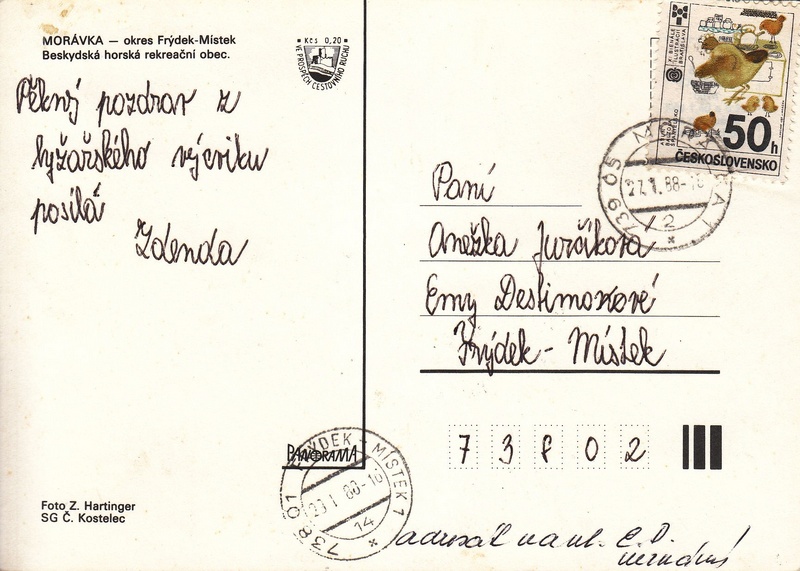 MORÁVKA – okres Frýdek-Místek
Beskydská horská rekreační obec.
Kčs 0,20
VE PROSPĚCH CESTOVNÍHO RUCHU
Pěkný pozdrav z
lyžařského výcviku
posílá
Zdenda
50h
ČESKOSLOVENSKO
739 05 MORÁVKA 1
27.1.88-16
12
Paní
Anežka Jurčíkova
Emy Destinové
Frýdek - Místek
73802
PANORAMA
FRÝDEK - MÍSTEK 1
738 01
14
Foto Z. Hartinger
SG Č. Kostelec
adresát na ul. E. D.